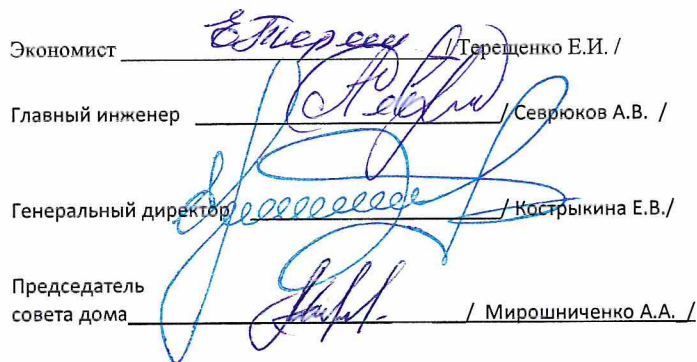 Экономист / Терещенко Е.И. /
Главный инженер / Севрюков А.В. /
Генеральный директор / Кострыкина Е.В./
Председатель
совета дома / Мирошниченко А.А. /